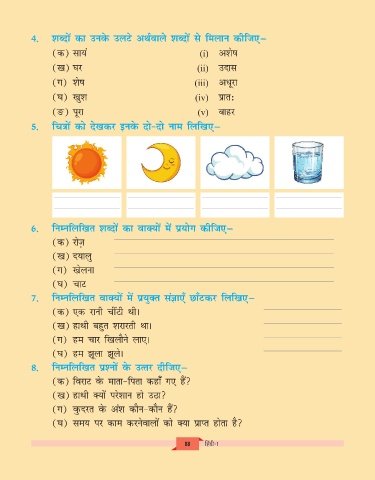 4. शब्दों का उनके उलटे अर्थवाले शब्दों से मिलान कीजिए–
(क) सायं (i) अशेष
(ख) घर (ii) उदास
(ग) शेष (iii) अधूरा
(घ) खुश (iv) प्रातः
(ङ) पूरा (v) बाहर
5. चित्रों को देखकर इनके दो-दो नाम लिखिए–
6. निम्नलिखित शब्दों का वाक्यों में प्रयोग कीजिए–
(क) रोज़
(ख) दयालु
(ग) खेलना
(घ) चाट
7. निम्नलिखित वाक्यों में प्रयुक्त संज्ञाएँ छाँटकर लिखिए–
(क) एक रानी चींटी थी।
(ख) हाथी बहुत शरारती था।
(ग) हम चार खिलौने लाए।
(घ) हम झूला झूले।
8. निम्नलिखित प्रश्नों के उत्तर दीजिए–
(क) विराट के माता-पिता कहाँ गए हैं?
(ख) हाथी क्यों परेशान हो उठा?
(ग) कुदरत के अंश कौन-कौन हैं?
(घ) समय पर काम करनेवालों को क्या प्राप्त होता है?
88 हिंदी-1